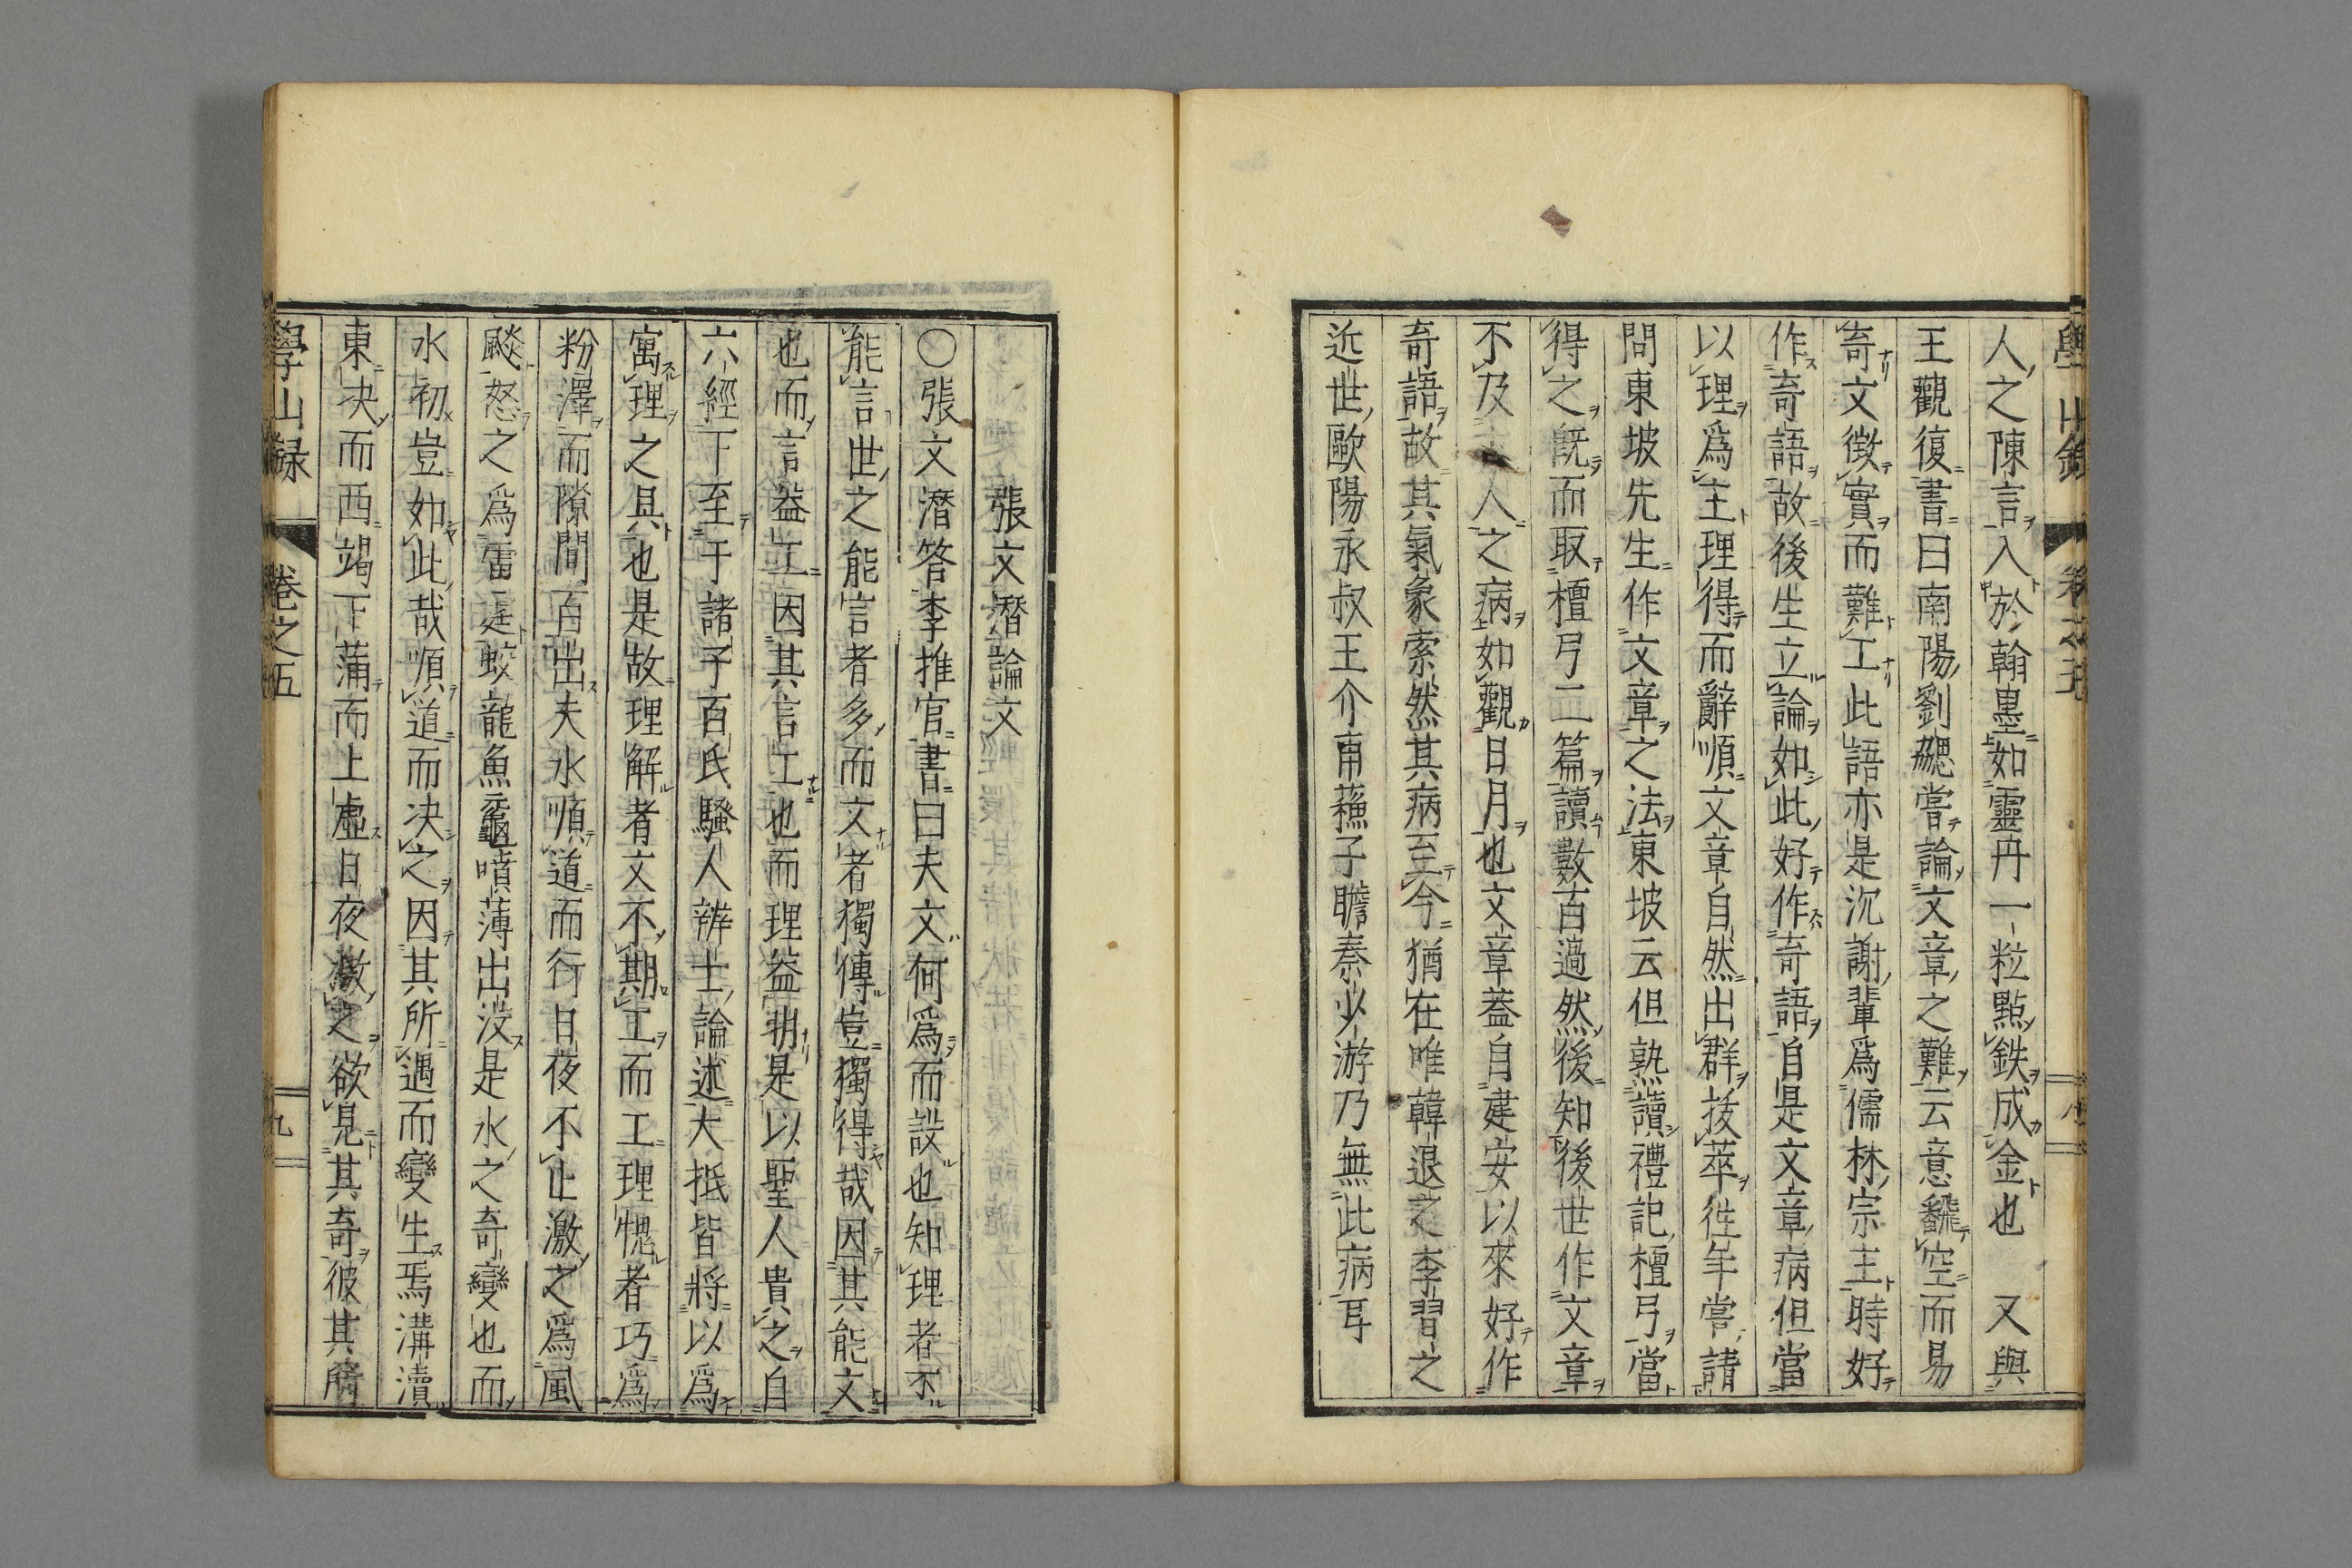 學山錄 卷之五 八
人之陳言入於翰墨如靈丹一粒點鉄成金也 又與
王觀復書曰南陽劉勰嘗論文章之難云意飜空而易
奇文徴實而難工此語亦是沉謝輩爲儒林宗主時好
作奇語故後生立論如此好作奇語自是文章病但當
以理爲主理得而辭順文章自然出群拔萃徃年嘗請
問東坡先生作文章之法東坡云但熟讀禮記檀弓當
得之既而取檀弓二篇讀數百過然後知後世作文章
不及人之病如觀日月也文章蓋自建安以來好作
奇語故其氣象索然其病至今猶在唯韓退之李習之
近世歐陽永叔王介甫蘓子瞻秦少游乃無此病耳
張文潛論文
〇張文潛答李推官書曰夫文何爲而設也知理者不
能言世之能言者多而文者獨傳豈獨得哉因其能文
也而言益工因其言工也而理益明是以聖人貴之自
六經下至于諸子百氏騷人辨士論述大抵皆將以爲
寓理之具也是故理解者文不期工而工理愧者巧爲
粉澤而隙間百出夫水順道而行日夜不止激之爲風
飈怒之爲雷霆蛟龍魚黿噴薄出沒是水之奇變也而
水初豈如此哉順道而决之因其所遇而變生焉溝瀆
東决而西竭下滿而上虛日夜激之欲見其奇彼其所
學山録 卷之五 九